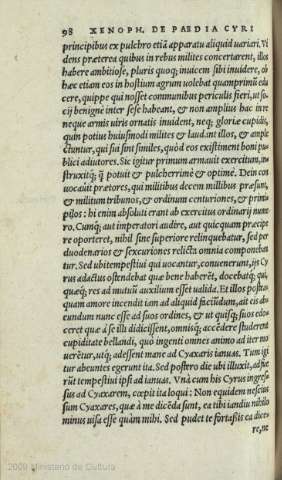 98 XENOPH. DE PÆDIA CYRI
principibus ex pulchro etiā apparatu aliquid uariari. Vi
dens præterea quibus in rebus milites concertarent, illos
habere ambitiose, pluris quoq; inuicem sibi inuidere, ob
hæc etiam eos in hostium agrum uolebat quamprimū edu
cere, quippe qui nosset communibus periculis fieri, ut so-
cij benigne inter sese habeant, & non amplius hac in re
neque armis uiris ornatis inuideant, neq; gloriæ cupidis,
quin potius huiusmodi milites & laudant illos, & ample
ctuntur, qui sui sint similes, quòd eos existiment boni pu-
blici adiutores. Sic igitur primum armauit exercitum, in-
struxitq; q̄ potuit & pulcherrime & optime. Dein con
uocauit prætores, qui militibus decem millibus præsunt,
& militum tribunos, & ordinum centuriones, & primi
pilos: hi enim absoluti erant ab exercitus ordinarij nume
ro. Cunq; aut imperatori audire, aut quicquam præcipe
re oporteret, nihil sine superiore relinquebatur, sed per
duodenarios & sexcuriones relicta omnia componeban
tur. Sed ubi tempestiui qui uocantur, conuenerunt, ijs Cy
rus adactus ostendebat quæ bene haberēt, docebatq; qui,
quæq; res ad mutuū auxilium esset ualida. Et illos postea
quam amore incendit iam ad aliquid faciūdum, ait eis ab
eundum nunc esse ad suos ordines, & ut quisq; suos edo-
ceret quæ à se illi didicissent, omnisq; accēdere studerent
cupiditate bellandi, quò ingenti omnes animo ad iter mo
uerētur, utq; adessent mane ad Cyaxaris ianuas. Tum igi
tur abeuntes egerunt ita. Sed postro die ubi illuxit, adfue
rūt tempestiui ipsi ad ianuas. Vnà cum his Cyrus ingres-
sus ad Cyaxarem, cœpit ita loqui: Non equidem nescius
sum Cyaxares, quæ à me dicēda sunt, ea tibi iandiu nihilo
minus uisa esse quàm mihi. Sed pudet te fortaßis ea dice-
re, ne
2009 Ministerio de Cultura